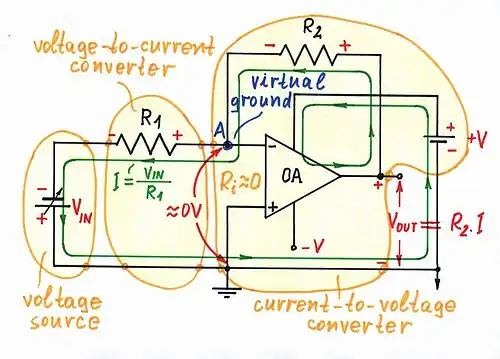 voltage-to-current
converter
R2
- +
virtual
ground
A
R1
- +
I = VIN/R1
Ri≈0
≈0V
-
+
OA
-V
+
-
+V
-
+
VIN
+
VOUT = R2.I
-
voltage
source
current-to-voltage
converter